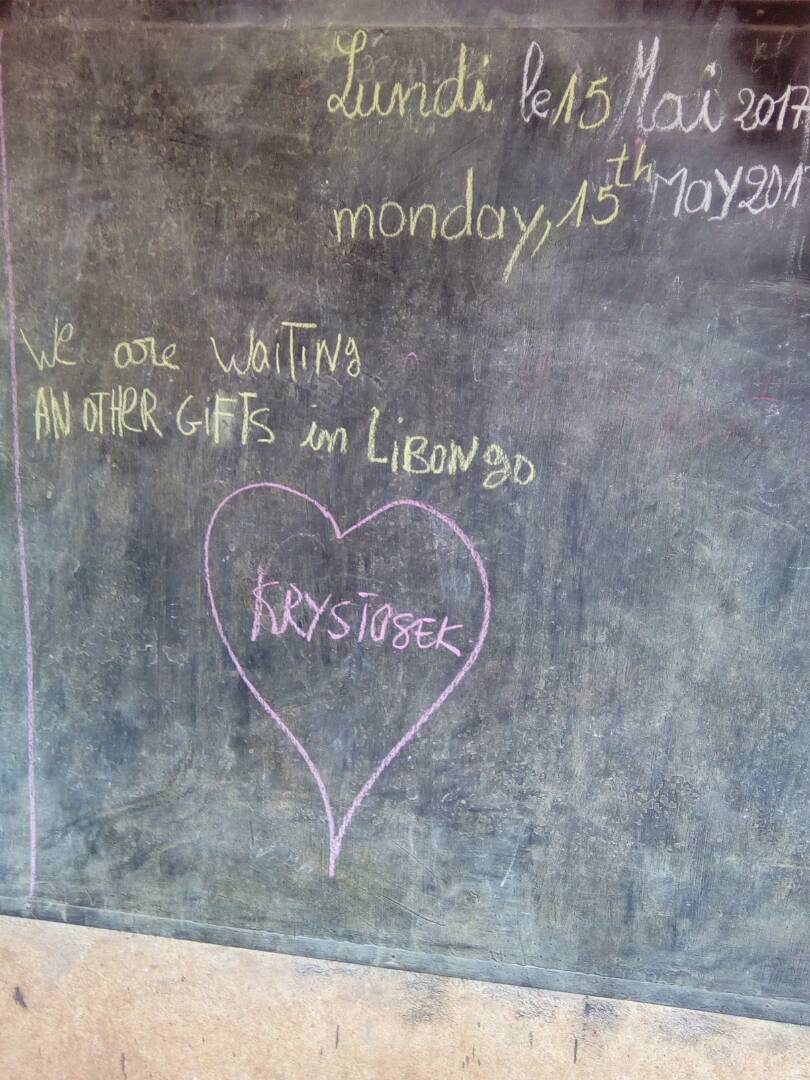 Lundi le 15 Mai 2017
monday, 15th May 201
We are waiTiNg
AN OTHER GiFTs in LiBONgo
KRYSTOSEK